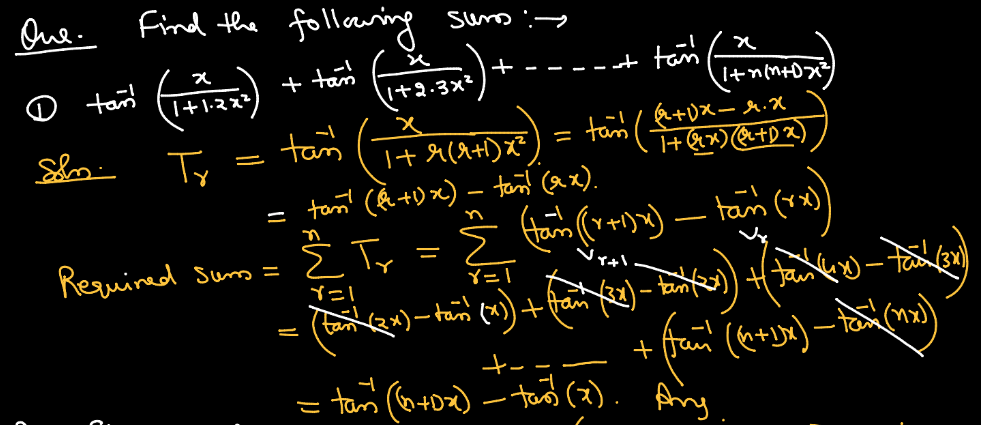 Que. Find the following sums :→
① tan⁻¹(x/(1+1·2x²)) + tan⁻¹(x/(1+2·3x²)) + - - - - - + tan⁻¹(x/(1+n(n+1)x²))
Soln. T_r = tan⁻¹(x/(1+r(r+1)x²)) = tan⁻¹(((r+1)x - r·x)/(1+(rx)(r+1)x))
= tan⁻¹((r+1)x) - tan⁻¹(rx).
Required sum = Σ_{r=1}^{n} T_r = Σ_{r=1}^{n} (tan⁻¹((r+1)x) - tan⁻¹(rx))
V_{r+1} V_r
= (tan⁻¹(2x) - tan⁻¹(x)) + (tan⁻¹(3x) - tan⁻¹(2x)) + (tan⁻¹(4x) - tan⁻¹(3x))
+ - - - + (tan⁻¹((n+1)x) - tan⁻¹(nx))
= tan⁻¹((n+1)x) - tan⁻¹(x). Ans